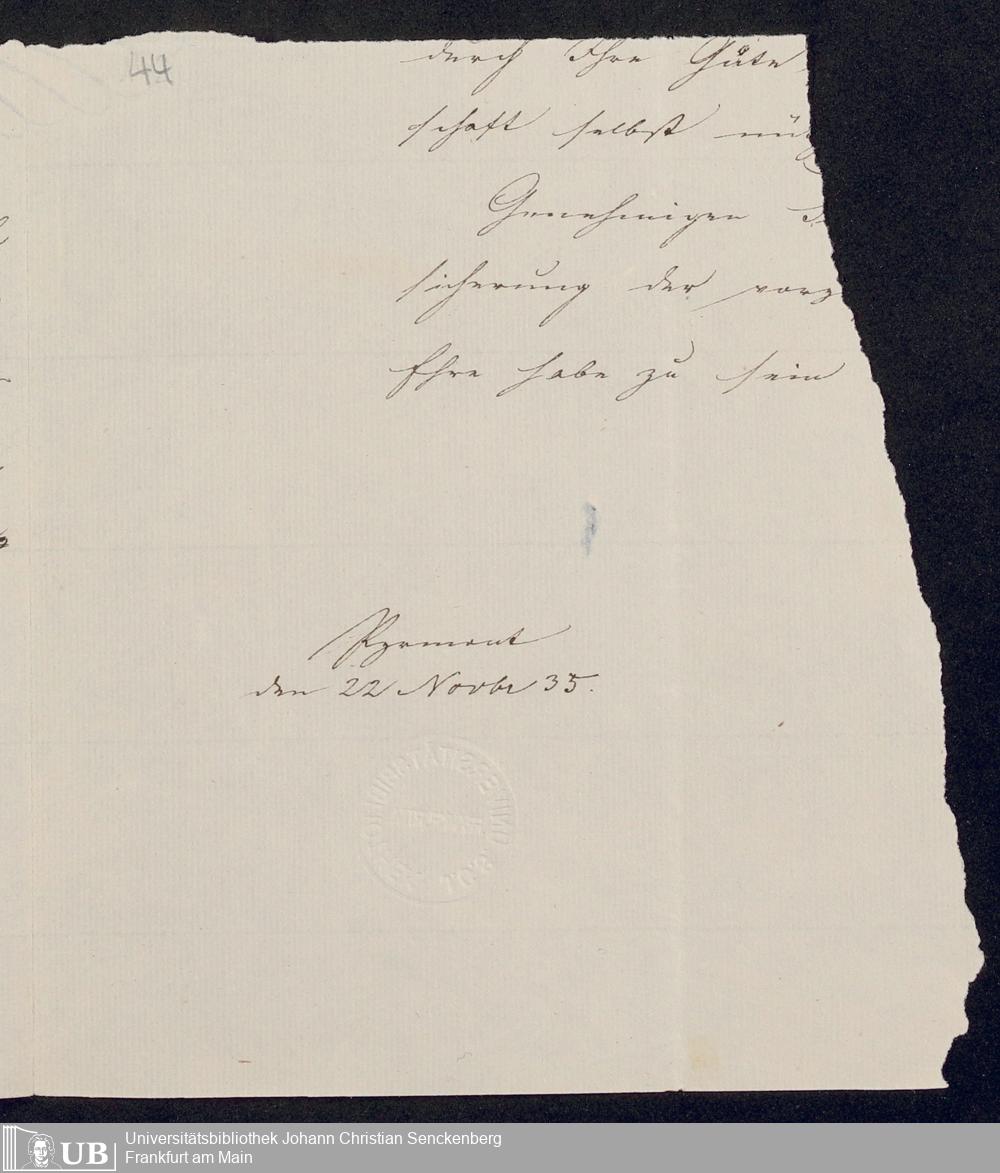 44
durch Ihre Güte
schaft selbst nütz
Genehmigen S
sicherung der vorz
Ehre habe zu sein
Pyrmont
den 22 Novbr 35.
UB
Universitätsbibliothek Johann Christian Senckenberg
Frankfurt am Main